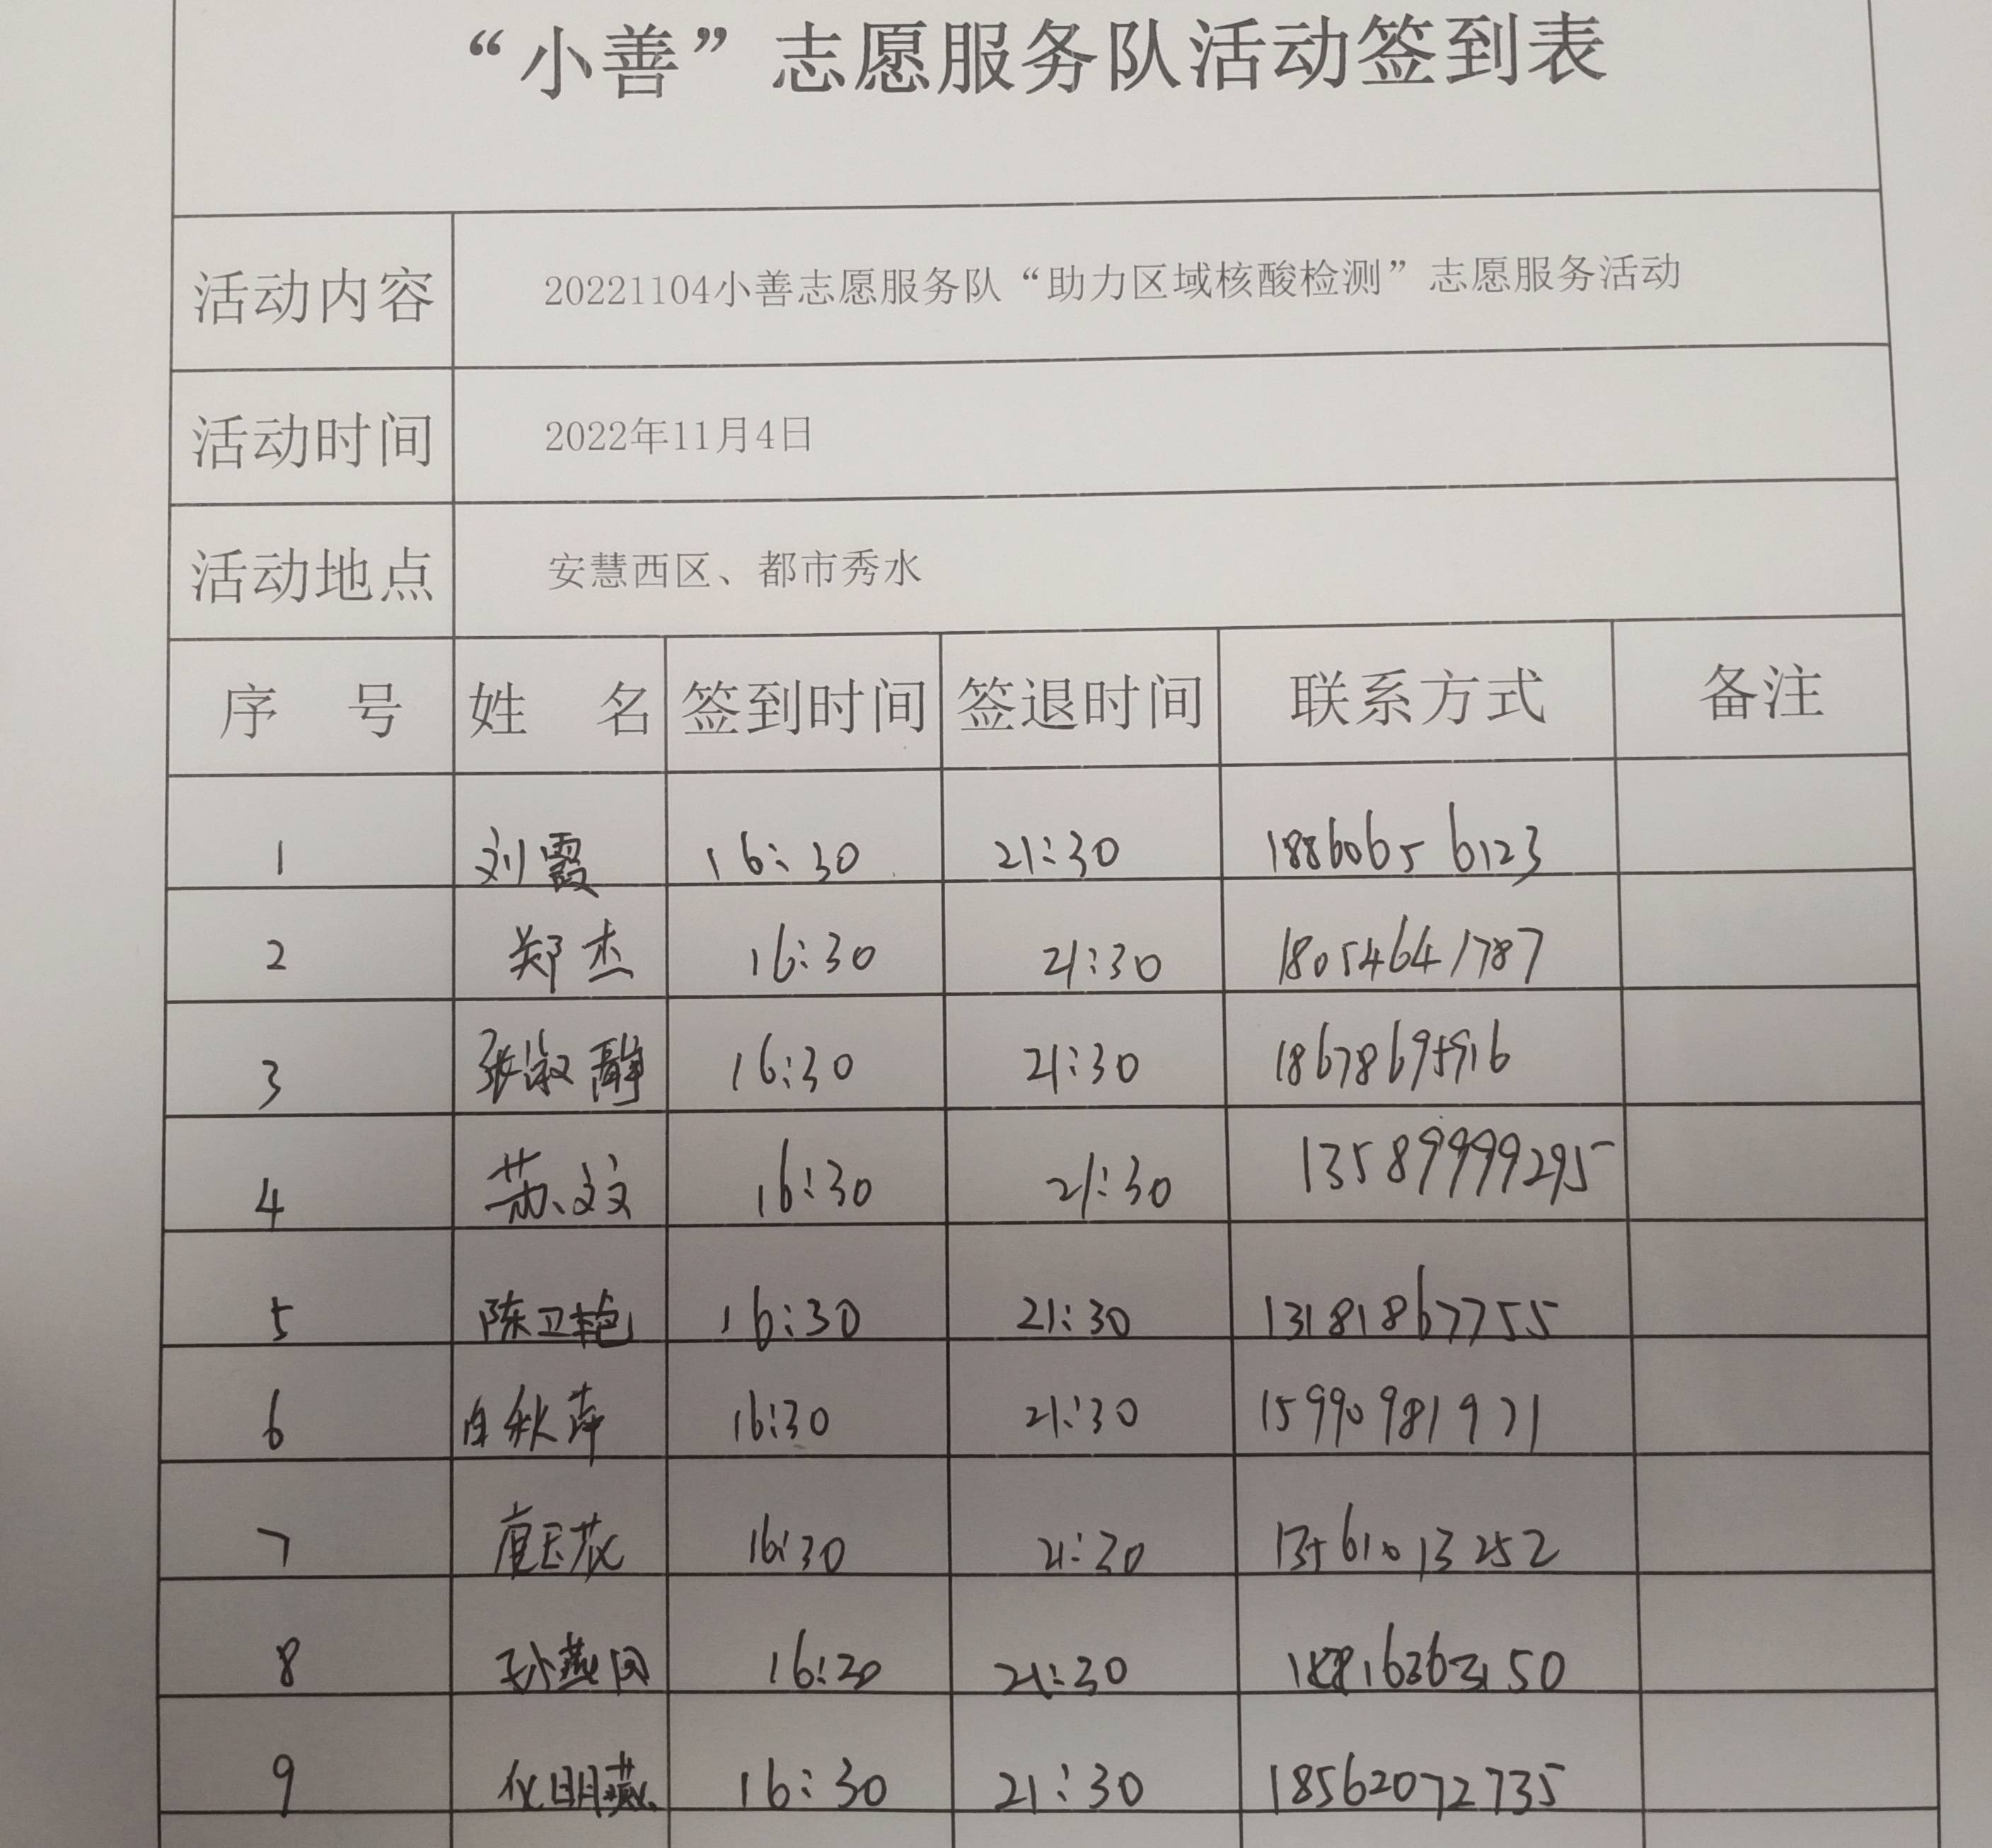 “小善”志愿服务队活动签到表
活动内容 20221104小善志愿服务队“助力区域核酸检测”志愿服务活动
活动时间 2022年11月4日
活动地点 安慧西区、都市秀水
序 号 姓 名 签到时间 签退时间 联系方式 备注
1 刘霞 16:30 21:30 18860656123
2 郑杰 16:30 21:30 18054641787
3 张淑静 16:30 21:30 18678695916
4 苏文 16:30 21:30 13589999295
5 陈卫艳 16:30 21:30 13181867755
6 白秋萍 16:30 21:30 15990981971
7 16:30 21:30 13561013252
8 孙燕 16:30 21:30
9 16:30 21:30 18562072735